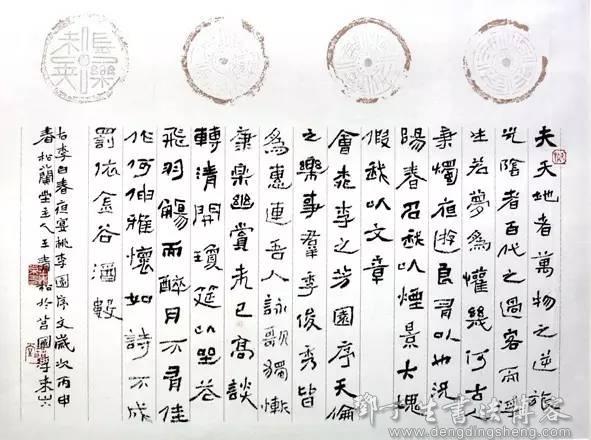 長樂未央
夫天地者萬物之逆旅
光陰者百代之過客而浮
生若夢為懽幾何古人
秉燭夜遊良有以也況
陽春召我以煙景大塊
假我以文章
會桃李之芳園序天倫
之樂事羣季俊秀皆
為惠連吾人詠歌獨慚
康樂幽賞未已高談
轉清開瓊筵以坐花
飛羽觴而醉月不有佳
作何伸雅懷如詩不成
罰依金谷酒數
右李白春夜宴桃李園序文歲次丙申
春松蘭堂主人王青松於莒國浮來山
鄧丁生書法博客
www.dengdingsheng.com